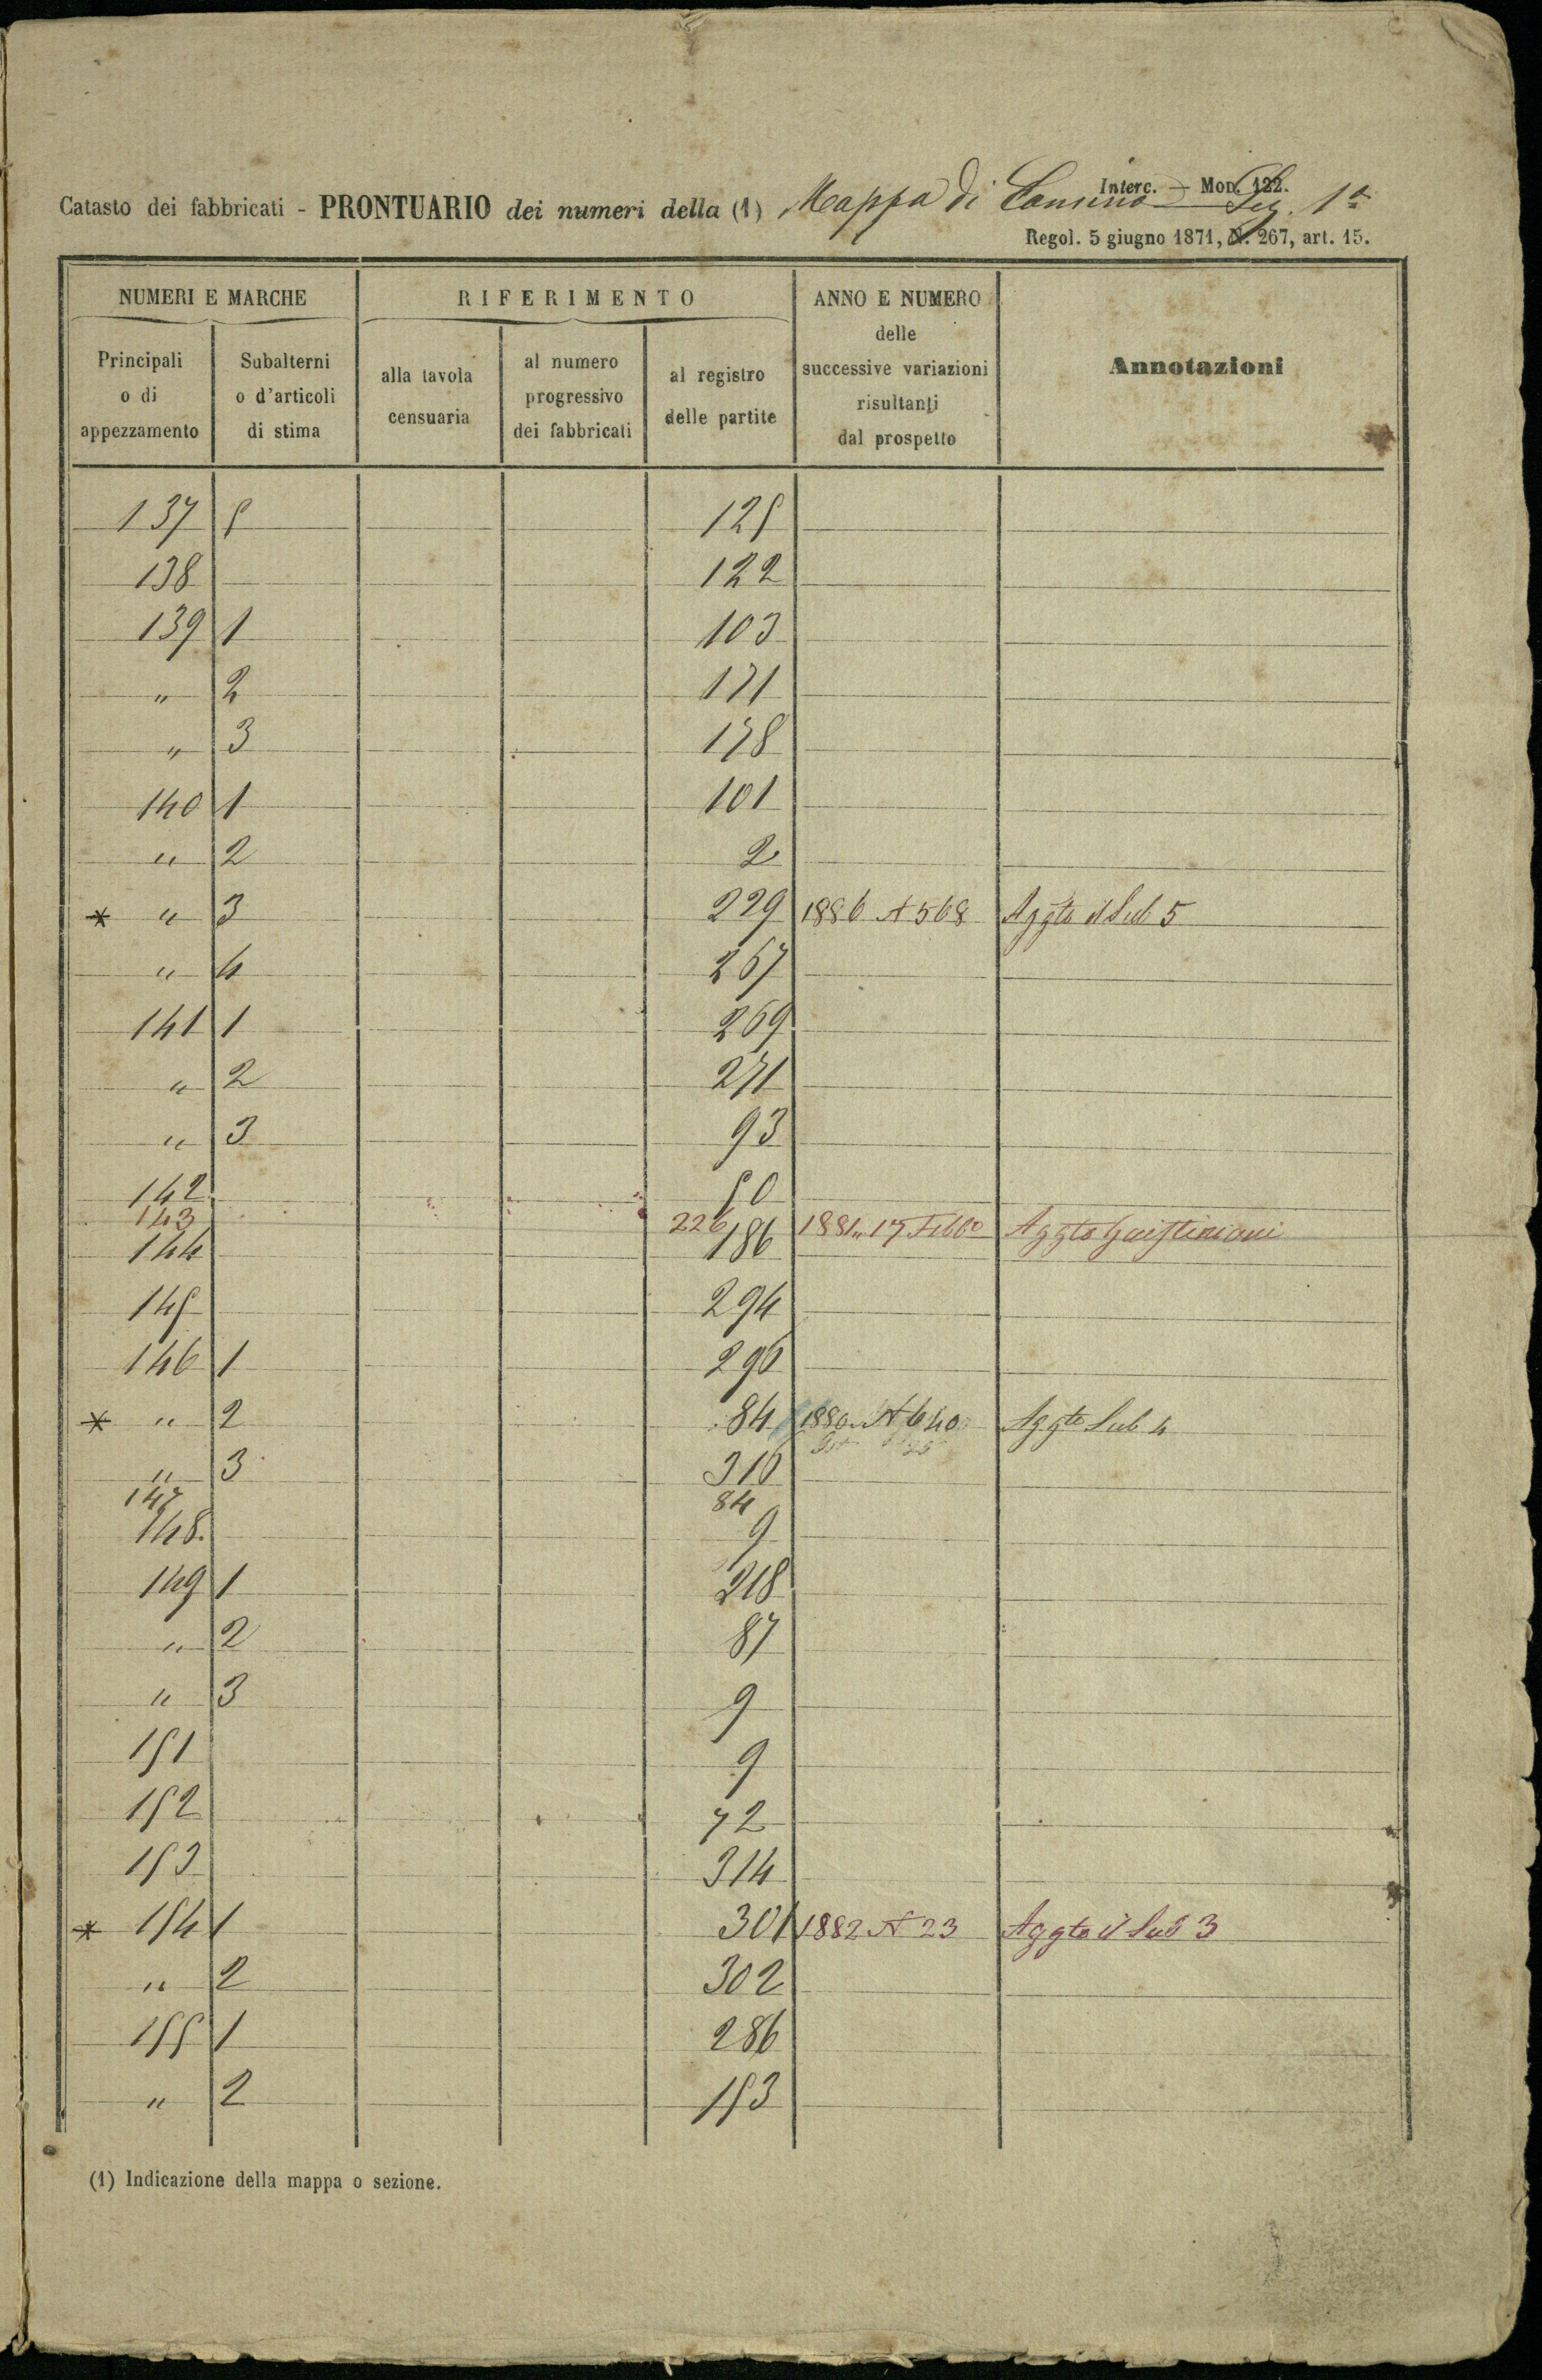 Interc. — Mod. 122.
Catasto dei fabbricati - PRONTUARIO dei numeri della (1) Mappa di Canino Sez. 1ª
Regol. 5 giugno 1871, N. 267, art. 15.
NUMERI E MARCHE RIFERIMENTO ANNO E NUMERO delle successive variazioni risultanti dal prospetto Annotazioni
Principali o di appezzamento Subalterni o d'articoli di stima alla tavola censuaria al numero progressivo dei fabbricati al registro delle partite
137 5 125
138 122
139 1 103
" 2 171
" 3 178
140 1 101
" 2 2
* " 3 229 1886 N 568 Aggto il Sub 5
" 4 267
141 1 269
" 2 271
" 3 93
142 50
143 226 1881 " 17 Febbo Aggto Gaistiniani
144 186
145 294
146 1 296
* " 2 84 1880 N 640 Aggto Sub 4
" 3 316
147 84
148. 9
149 1 218
" 2 87
" 3 9
151 9
152 72
153 314
* 154 1 301 1882 N 23 Aggto il Sub 3
" 2 302
155 1 286
" 2 153
(1) Indicazione della mappa o sezione.